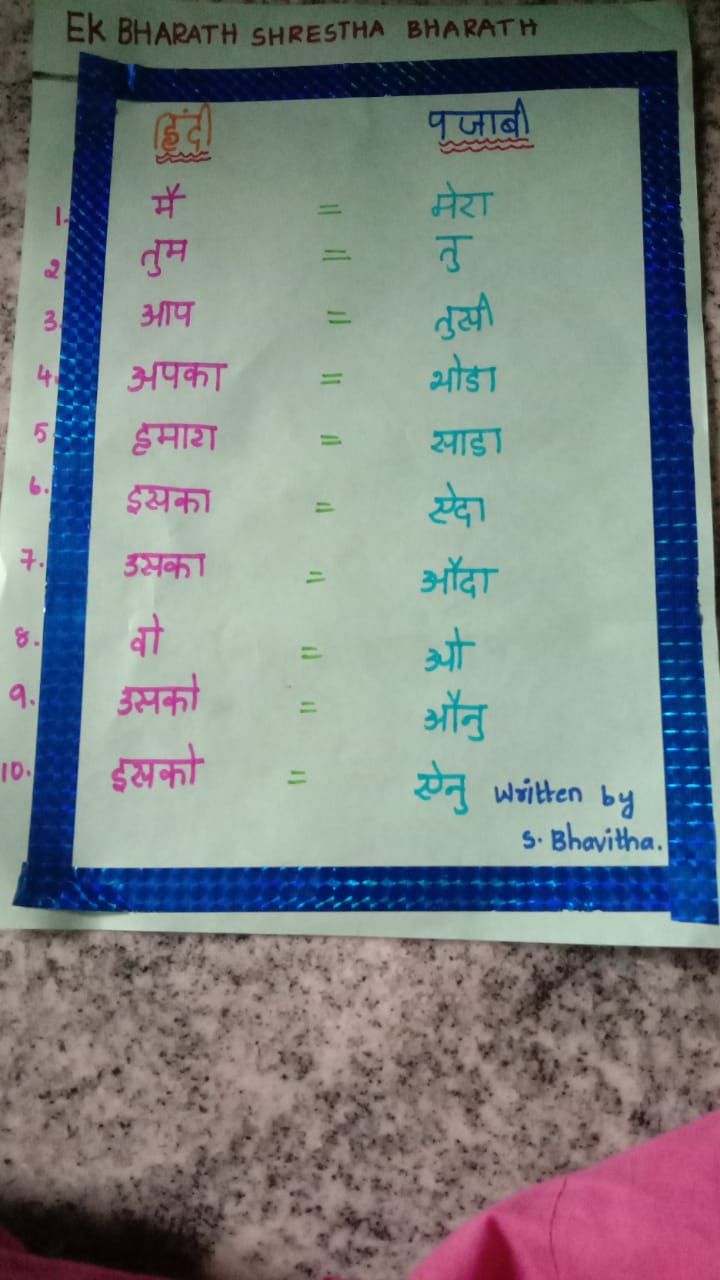 EK BHARATH SHRESTHA BHARATH
हिंदी पजाबी
1. मै = मेरा
2 तुम = तु
3. आप = तुसी
4. अपका = थोडा
5 हमारा = साडा
6. इसका = ऐदा
7. उसका = औदा
8. वो = ओ
9. उसको = औनु
10. इसको = ऐनु
Written by
S. Bhavitha.